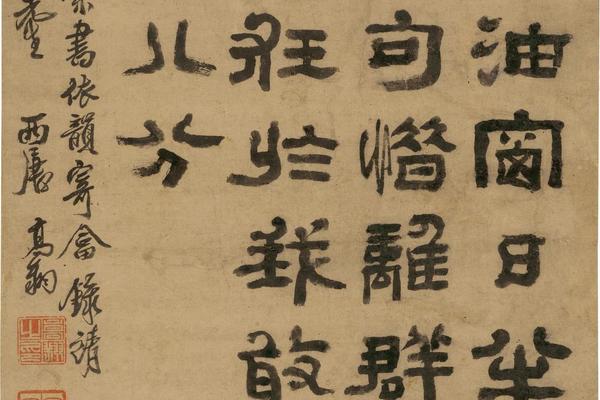 油窗日坐
句憯離群
狂於我敢
八分
書依韻寄畣錄請
西唐高翔